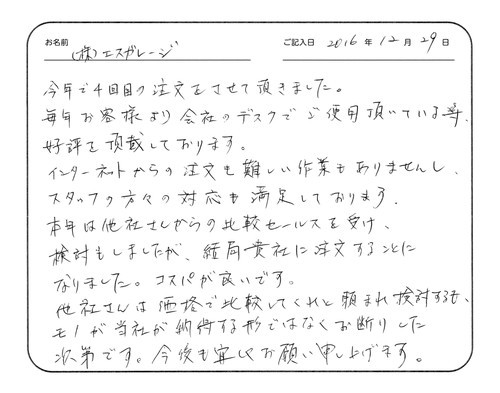 お名前 (株)エスガレージ ご記入日 2016年12月29日
今年で4回目の注文をさせて頂きました。
毎年お客様より会社のデスクでご使用頂いている等、
好評を頂戴しております。
インターネットからの注文も難しい作業もありませんし、
スタッフの方々の対応も満足しております。
本年は他社さんからの比較セールスを受け、
検討もしましたが、結局貴社に注文することに
なりました。コスパが良いです。
他社さんは価格で比較してくれと頼まれ検討するも、
モノが当社が納得する形ではなくお断りした
次第です。今後も宜しくお願い申し上げます。